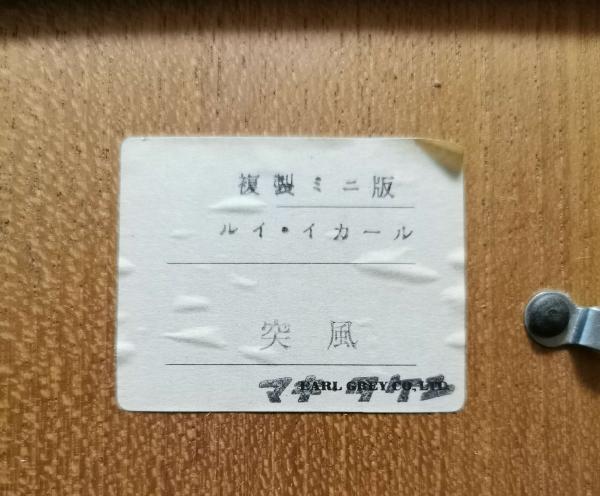 複製ミニ版
ルイ・イカール
突風
EARL GREY CO., LTD.